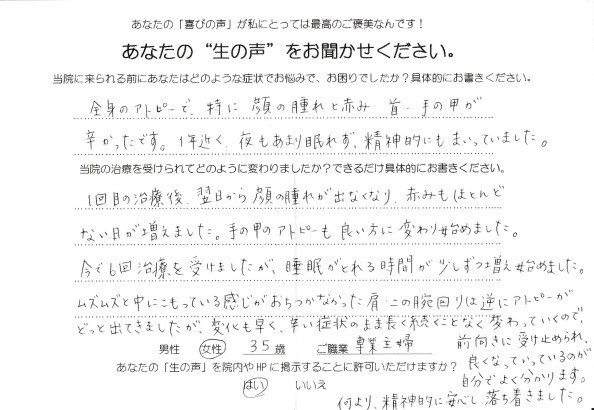 あなたの「喜びの声」が私にとっては最高のご褒美なんです！
あなたの“生の声”をお聞かせください。
当院に来られる前にあなたはどのような症状でお悩みで、お困りでしたか？具体的にお書きください。
全身のアトピーで、特に 顔の腫れと赤み 首、手の甲が
辛かったです。1年近く、夜もあまり眠れず、精神的にもまいっていました。
当院の治療を受けられてどのように変わりましたか？できるだけ具体的にお書きください。
1回目の治療後、翌日から顔の腫れが出なくなり、赤みもほとんど
ない日が増えました。手の甲のアトピーも良い方に変わり始めました。
今で6回治療を受けましたが、睡眠がとれる時間が少しずつ増え始めました。
ムズムズと中にこもっている感じがおちつかなかった肩・この腕回りは逆にアトピーが
どっと出てきましたが、変化も早く、辛い症状のまま長く続くことなく変わっていくので、
前向きに受け止められ、
良くなっていっているのが
自分でよく分かります。
何より、精神的に安心し、落ち着きました。
男性 女性 35歳 ご職業 専業主婦
あなたの「生の声」を院内やHPに掲示することに許可いただけますか？
はい いいえ